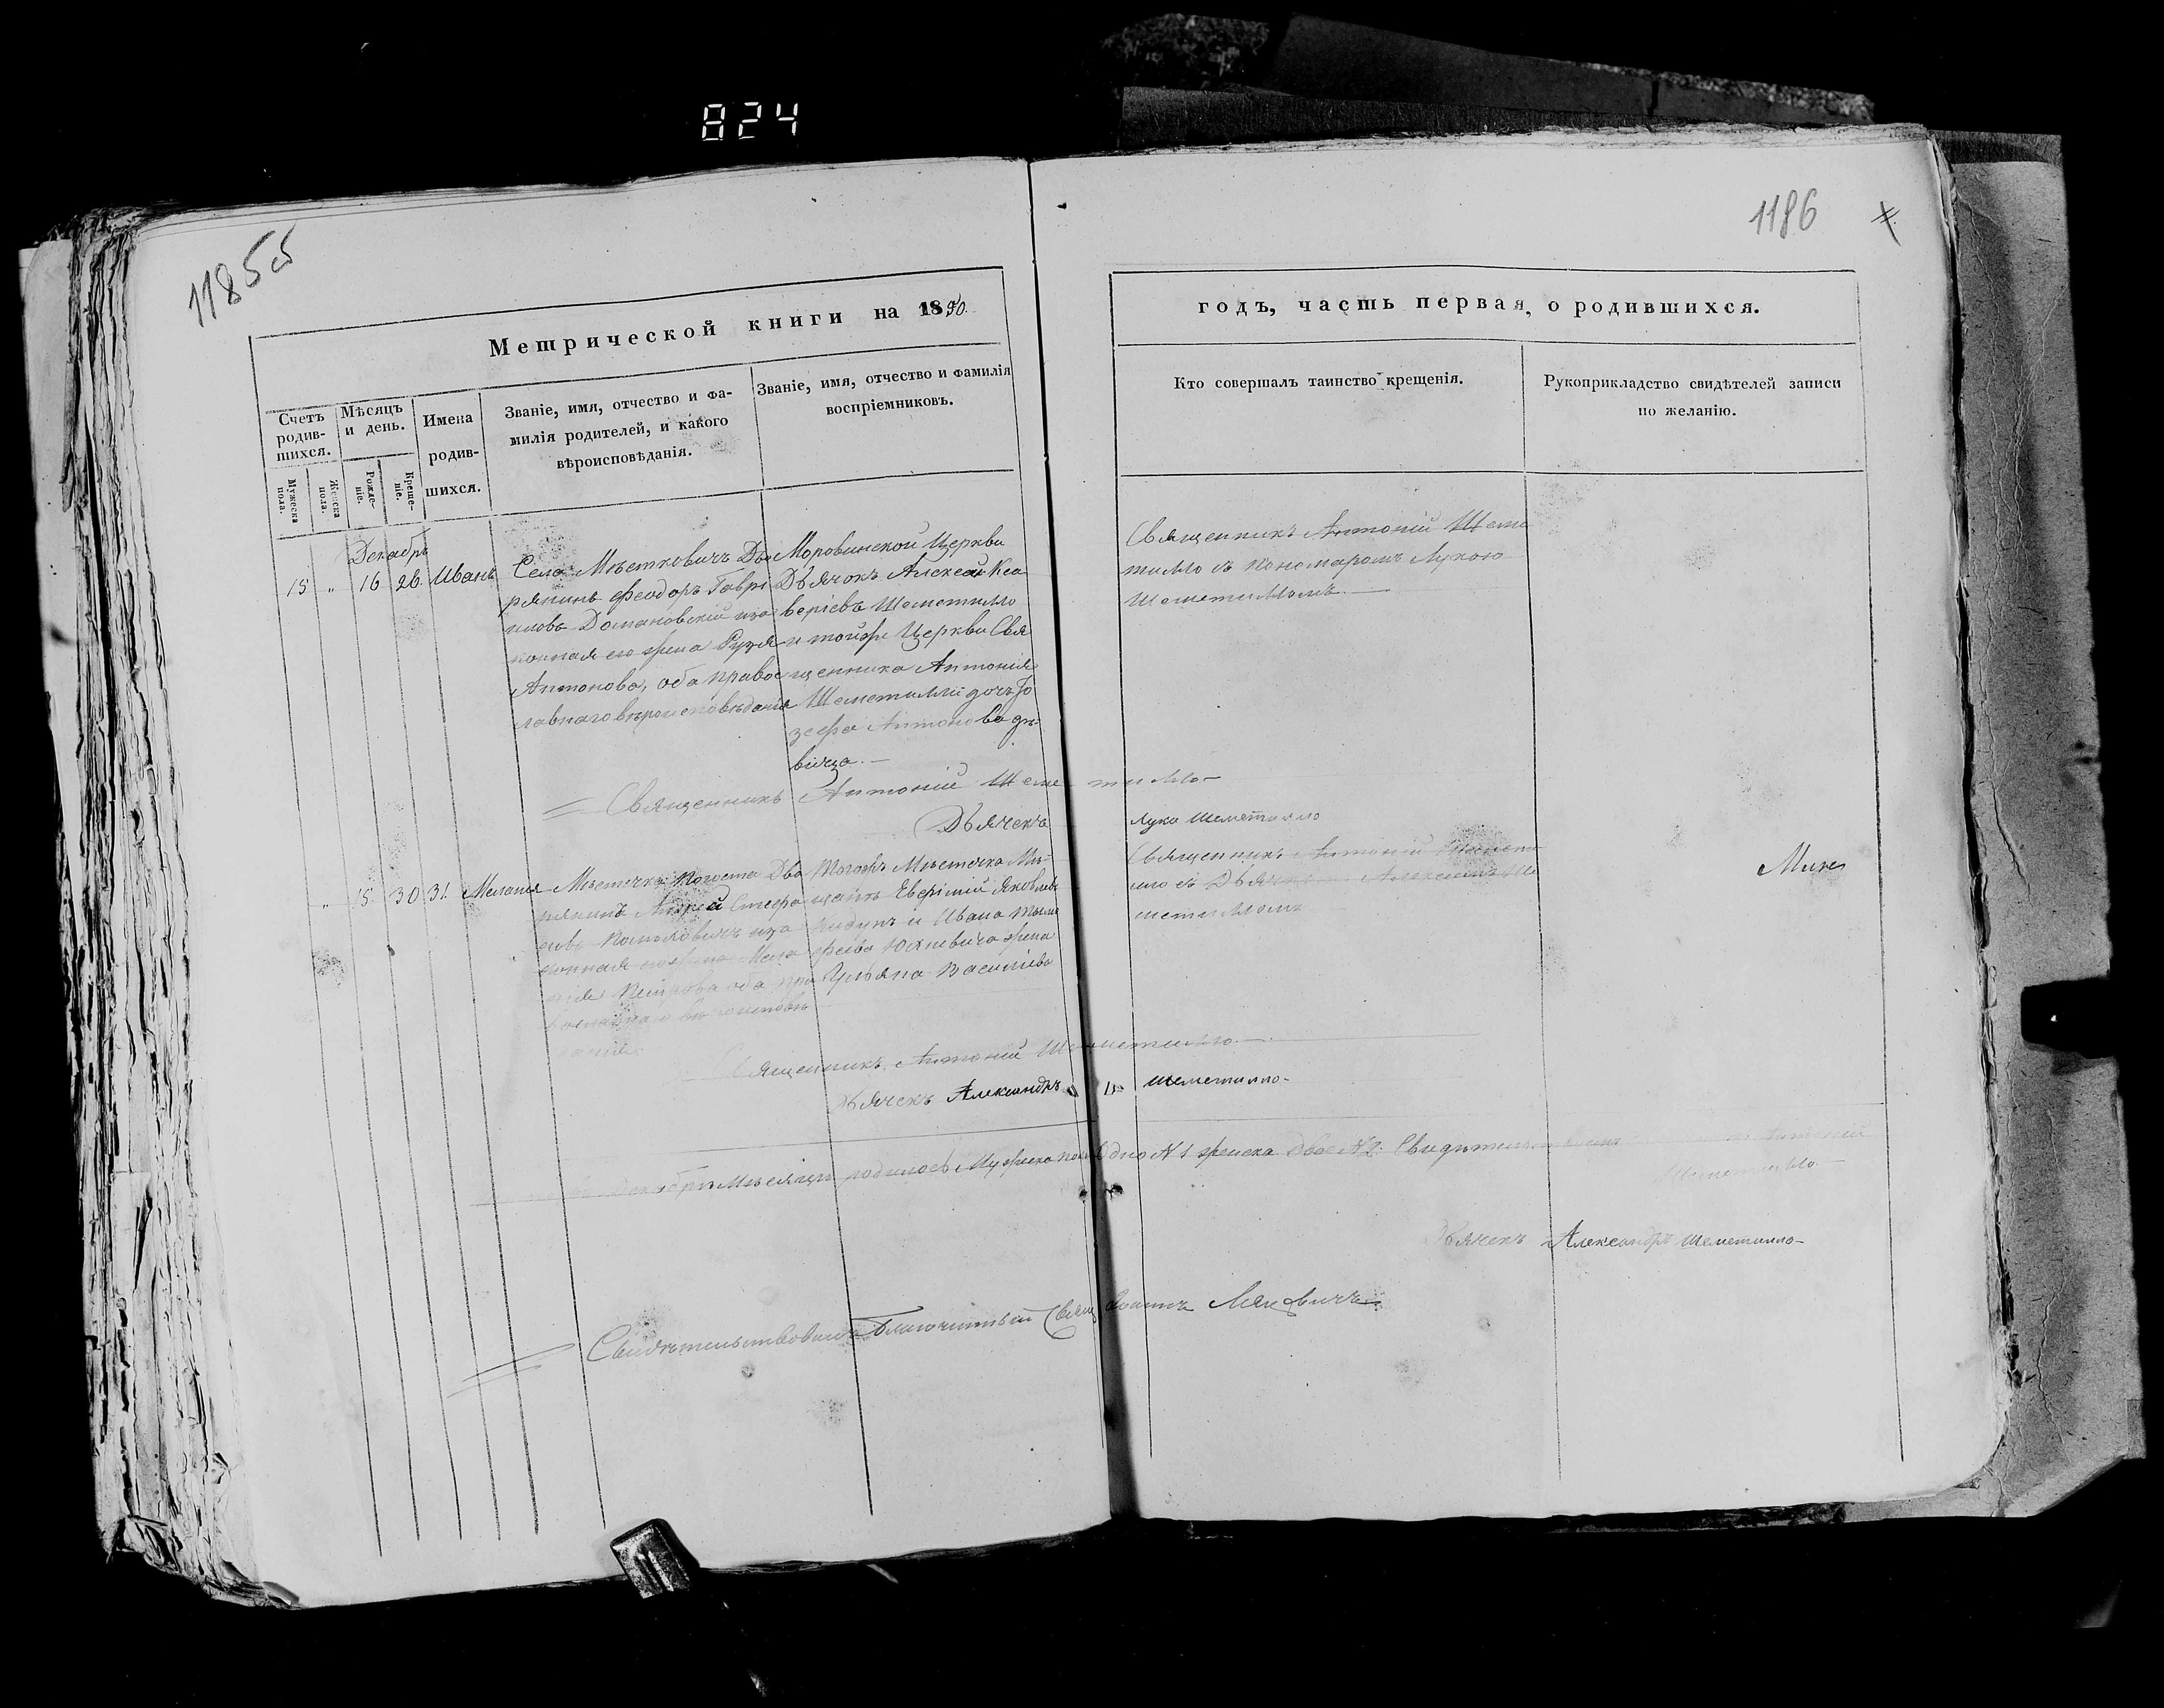 824
1185об
1186
Метрической книги на 1850.
годъ, часть первая, о родившихся.
Счетъ родив-шихся.
Мужеска пола.
Женска пола.
Мѣсяцъ и день.
Рожде-ніе.
Креще-ніе.
Имена
родив-
шихся.
Званіе, имя, отчество и фа-
милія родителей, и какого
вѣроисповѣданія.
Званіе, имя, отчество и фамилія
воспріемниковъ.
Кто совершалъ таинство крещенія.
Рукоприкладство свидѣтелей записи
по желанію.
Декабрь
15 " 16 26. Иванъ
Села Мѣстковичъ Дво
рянинъ Феодоръ Гаврі
иловъ Домановскій иза
конная его жена Рузя
Антонова, оба правос
лавнаго вѣроисповѣданія
Моровинской Церкви
Дьячокъ Алексей Кса
веріевъ Шеметилло
и тойже Церкви Свя
щенника Антонія
Шеметиллы дочь Іо
зефа Антонова дѣ
вица. —
Священникъ Антоній Шеме
тилло съ Пономаромъ Лукою
Шеметилломъ. —
Священникъ Антоній Шеметилло —
Дьячекъ Лука Шеметилло
" 15 30 31. Меланія
Мѣстечка Погоста Дво
рянинъ Андрей Стефа
новъ иза
конная его жена Мела
нія Петрова оба пра
вославнаго вѣроисповѣ
данія.
Тогожъ Мѣстечка Мѣ-
щанъ Евфімій Яковлевъ
и Ивана Тимо
феева Юхневича жена
Ульяна Василіева
Священникъ Антоній Шемет
илло съ Дьячкомъ Александромъ Ше
метилломъ
Священникъ Антоній Шеметилло. —
Дьячекъ Александръ Шеметилло-
Декабрѣ Мѣсяцѣ родилось Мужеска пола Одно N 1 женска двое N 2. Антоній
Шеметилло. —
Дьячекъ Александръ Шеметилло-
Свидѣтельствовалъ Благочинный Свящ Іоаннъ